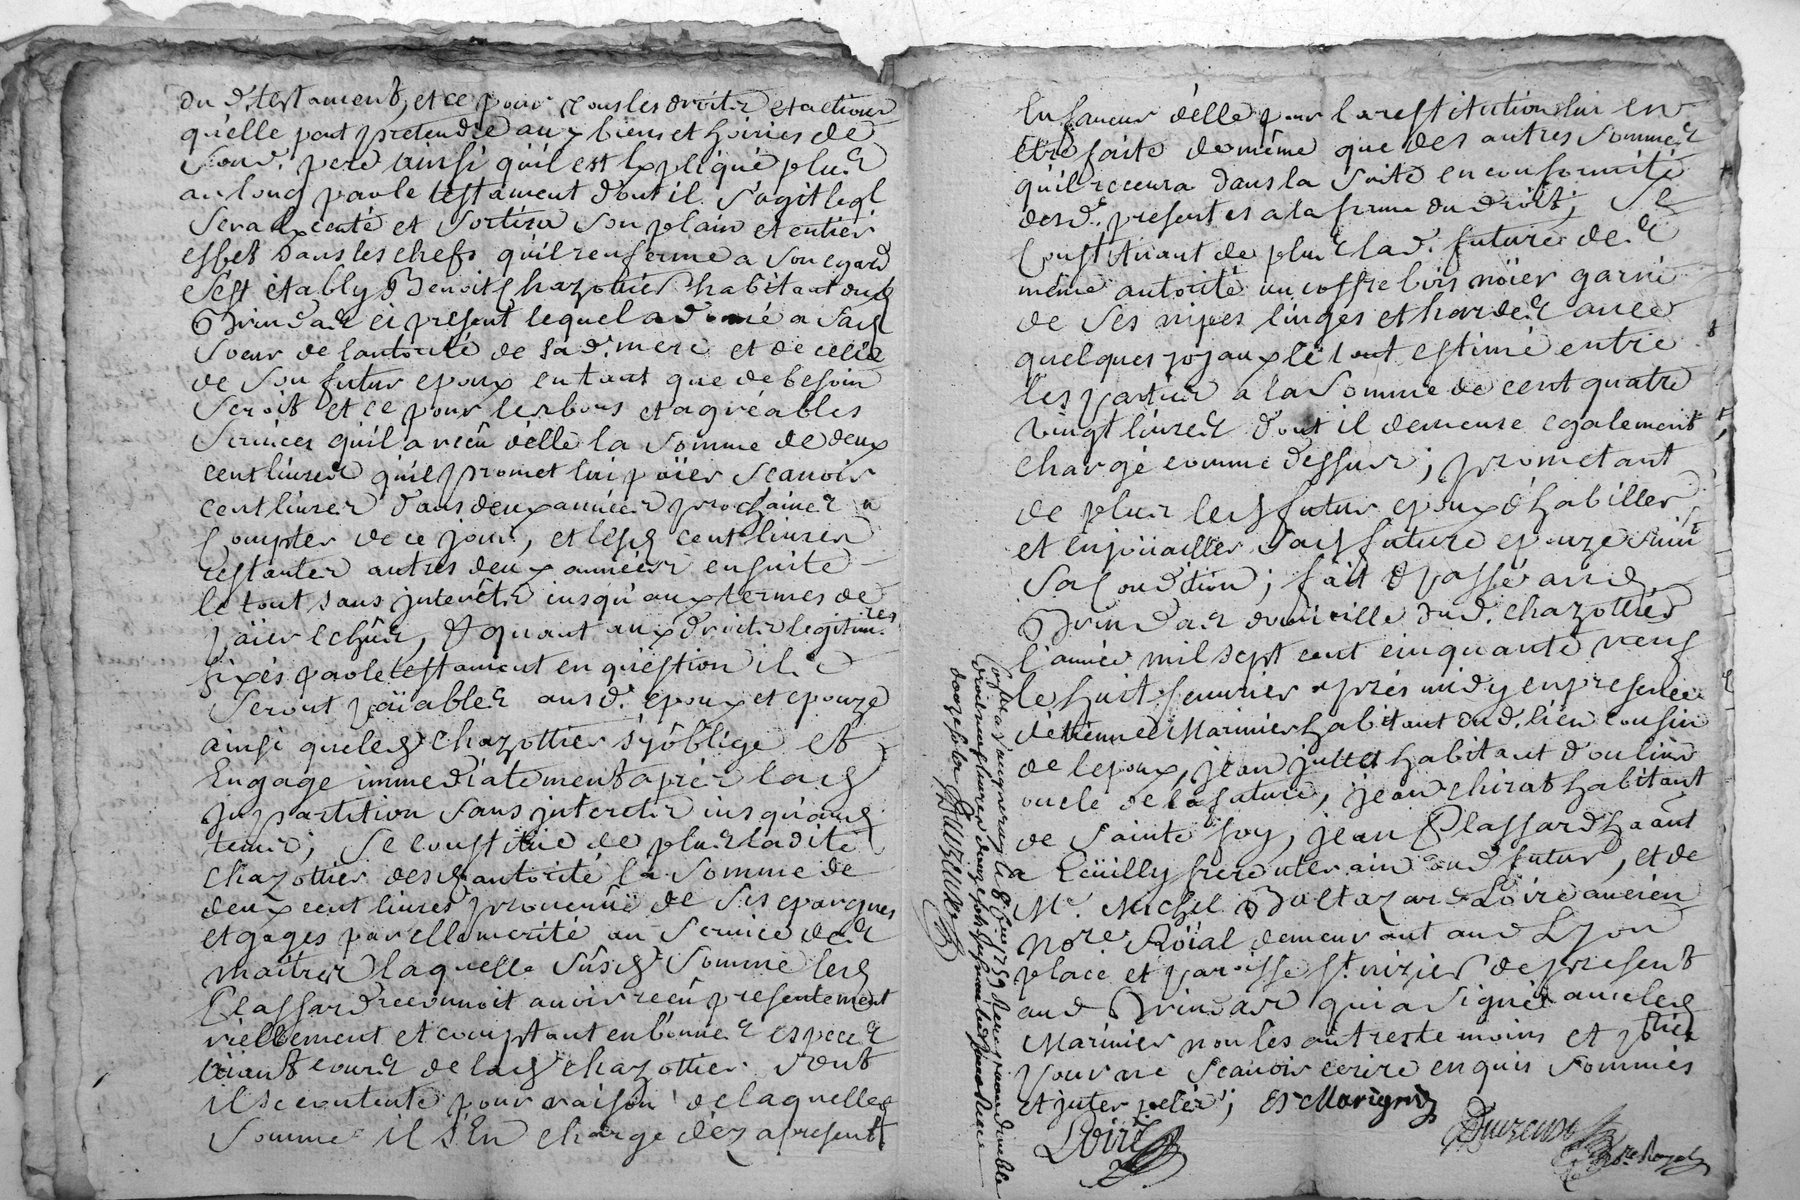 du d. testament, et ce pour tous les droits et actions
qu'elle peut pretendre aux biens et hoiries de
Son d. pere ainsi qu'il est Expliqué plus
au long par le testament dont il S'agit leql
Sera Executé et Sortira Son plain et entier
effet dans les chefs qu'il renferme a Son egard
S'est étably Benoit Chazottier habitant dud
Brindas ci present lequel a donné a Sad
Soeur de l'autorité de Sad. mere et de celle
de Son futur epoux en tant que de besoin
Seroit et ce pour les bons et agréables
Services qu'il a recû d'elle la Somme de deux
cent livres qu'il promet lui païer Scavoir
cent livres dans deux années prochaines a
Compter de ce jour, et lesd cent livres
restantes autres deux années ensuite
le tout Sans interêts jusqu'aux termes de
païer echûs, Et quant aux droits legitimres
fixés par le testament en question il
Seront païables aud. epoux et epouze
ainsi que led Chazottier s'y oblige et
Engage immediatement après lad
Sans interets jusqu'aud
terme; Se constitue de plus ladite
Chazottier desd autorité la Somme de
deux cent livres provenue de Ses epargnes
et gages par elle merité au Service de
maitres laquelle Susd Somme led
Plassard reconnoit avoir recû presentement
réellement et comptant en bonnes especes
aïant cours de lad Chazottier dont
il Se contente pour raison de laquelle
Somme il S'En charge déz apresent
En faveur d'elle pour la restitution lui en
Etre faite de même que des autres Sommes
qu'il recevra dans la Suite en conformité
des d. presentes a la forme du droit; Se
Constituant de plus lad. future de
même autorité un coffre bois noïer garni
de Ses nipes linges et hardes avec
quelques joyaux le tout estimé entre
les parties a la Somme de cent quatre
vingt livres dont il demeure egalement
chargé comme dessus; prometant
de plus led futur epoux d'habiller
et enjoüailler Sad future epouze Suiv
Sa Condition; fait et passé aud
Brindas domicille dud. Chazottier
l'année mil sept cent cinquante neuf
le huit fevrier après midy en presence
d'etienne Marinier habitant dud. lieu cousin
de lepoux, jean juttet habitant d'oulins
oncle de la future, jean chirat habitant
de Sainte foy, jean Plassard haānt
a Ecüilly frere uterain dud futur, et de
Me. Michel Baltazard Loire ancien
Nore. Roïal demeurant aud Lyon
place et paroisse St. nizier de present
aud Brindas qui a Signé avec led
Marinier non les autres temoins et pties
pour ne Scavoir ecrire enquis Sommés
et interpelés; Et Marignier
Loire
Duizeuve
Nore. Royal
Conllé a Vaugneray le 8e fevr 1759